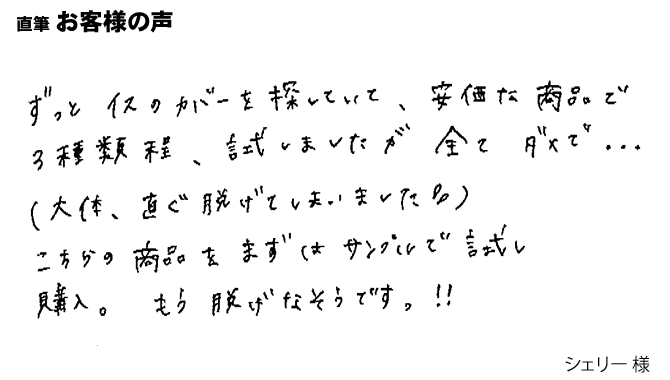 直筆 お客様の声
ずっと イスのカバーを探していて、安価な商品で
3種類程、試しましたが 全て ダメで...
(大体、直ぐ脱げてしまいました〣)
こちらの商品をまずは サンプルで試し
購入。 もう脱げなそうです。!!
シェリー 様